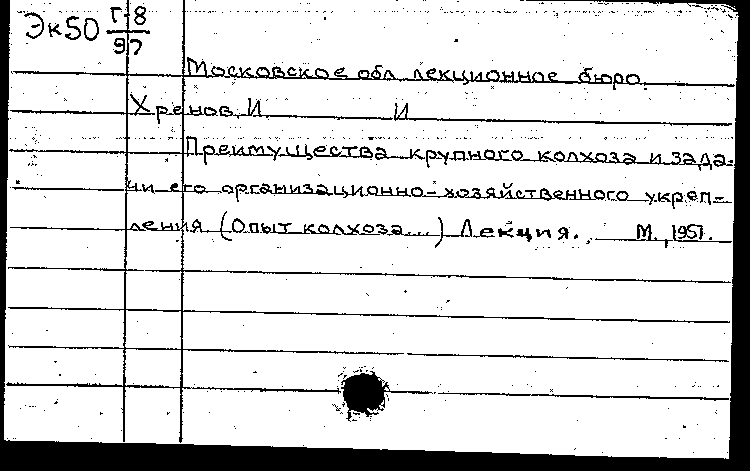 Эк50 Г-8
97
Московское обл. лекционное бюро.
Хренов И И
Преимущества крупного колхоза и зада-
чи его организационно-хозяйственного укреп-
ления (Опыт колхоза...) Лекция. М., 1951.